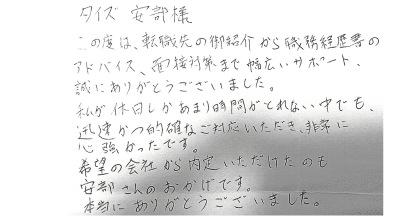 タイズ 安部様
この度は、転職先の御紹介から職務経歴書の
アドバイス、面接対策まで幅広いサポート、
誠にありがとうございました。
私が休日しかあまり時間がとれない中でも、
迅速かつ的確なご対応いただき、非常に
心強かったです。
希望の会社から内定いただけたのも
安部さんのおかげです。
本当にありがとうございました。